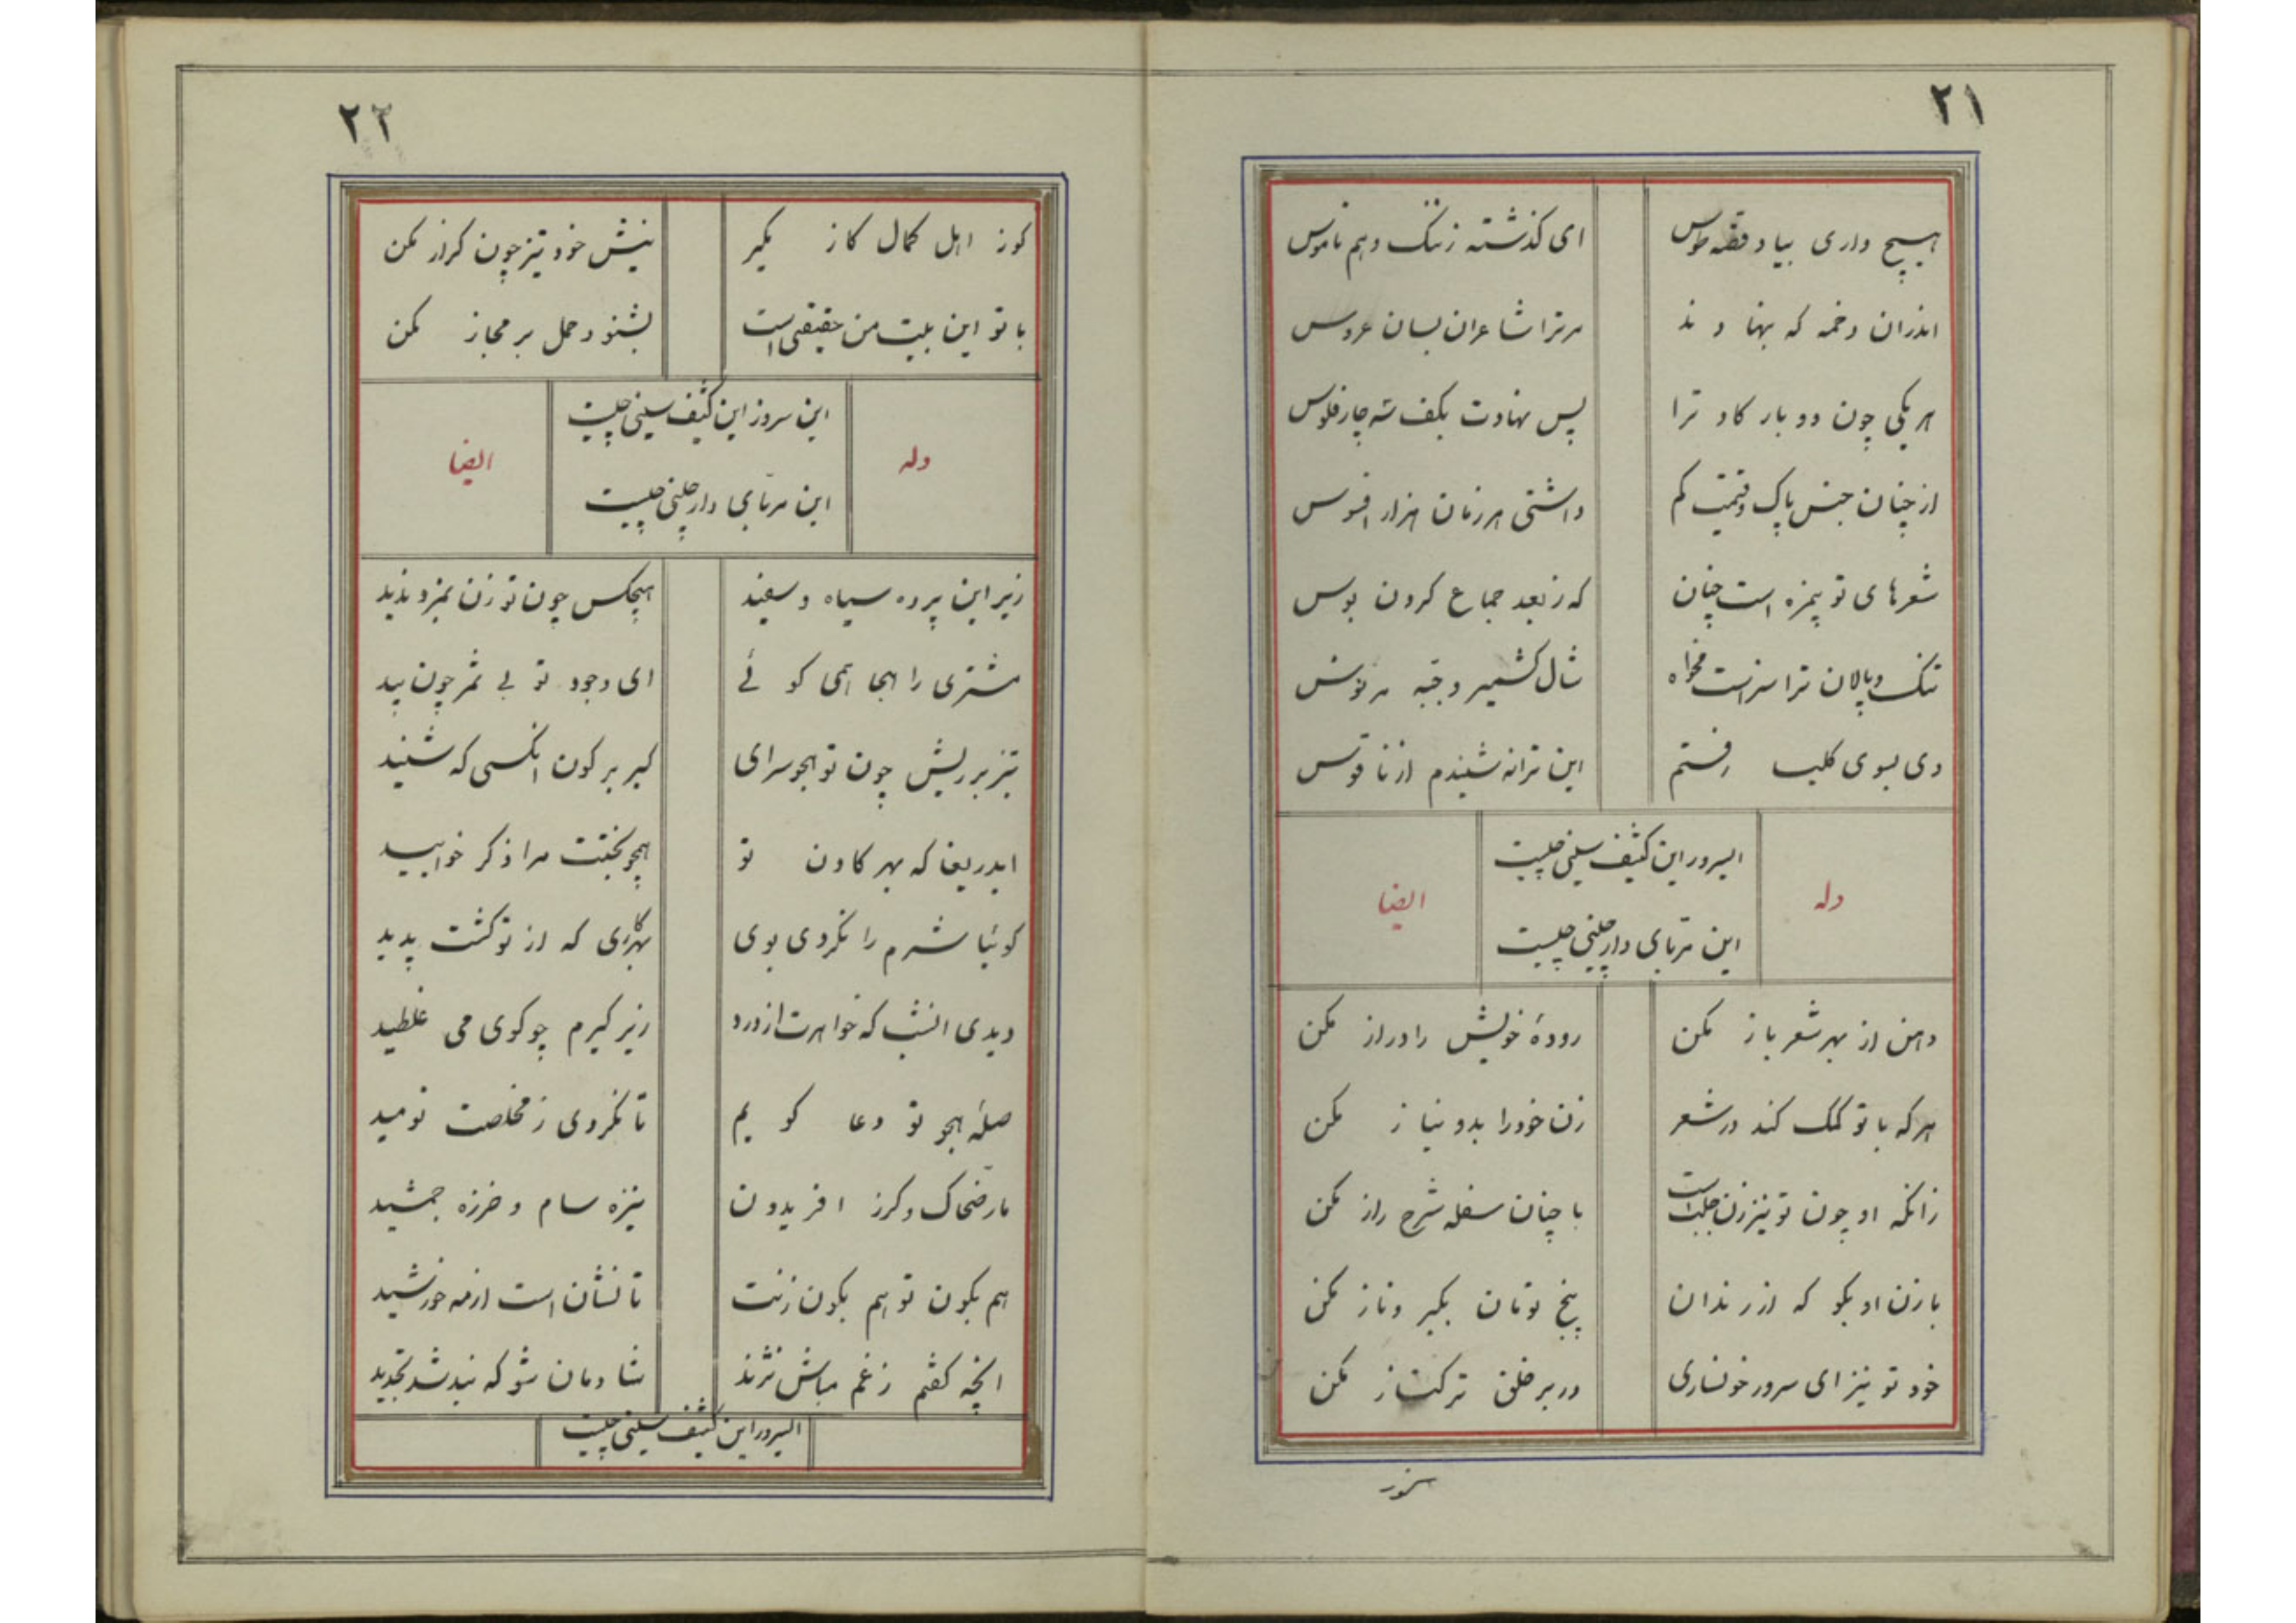 ۲۱
هیچ داری بیاد قصه طوس
ای کذشته ز ننک و هم ناموس
اندران دخمه که بنهادند
مر ترا شاعران بسان عروس
هر یکی چون دو بار کاد ترا
پس نهادت بکف سه چار فلوس
از چنان جنس پاک و قیمت کم
داشتی هر زمان هزار افسوس
شعرهای تو بیمزه است چنان
که ز بعد جماع کردن بوس
تنک و پالان ترا سزاست مخواه
شال کشمیر و جبه
دی بسوی کلیسا رفتم
این ترانه شنیدم از ناقوس
وله
ایسرور این کثیف سینی چیست
این مربای دارچینی چیست
ایضا
دهن از بهر شعر باز مکن
رودهٔ خویش را دراز مکن
هر که با تو کمک کند در شعر
زن خود را بدو نیاز مکن
زانکه او چون تو نیز زن جلب است
با چنان سفله شرح راز مکن
با زن او بکو که از رندان
پنج تومان بکیر و ناز مکن
خود تو نیز ای سرور خونساری
در بر خلق ترکتاز مکن
۲۲
کوز اهل کمال کاز مکیر
نیش خود تیز چون کراز مکن
با تو این بیت من حقیقی است
بشنو و حمل بر مجاز مکن
وله
این سروز این کثیف سینی چیست
این مربای دارچینی چیست
ایضا
زیر این پرده سیاه و سفید
هیچکس چون تو زن بمزد ندید
مشتری را هجا همی کوئی
ای وجود تو بی ثمر چون بید
تیز بر ریش چون تو هجو سرای
کیر بر کون انکسی که شنید
ایدریغا که بهر کادن تو
همچو بختت مرا ذکر خوابید
کوئیا شرم را نکردی بوی
دیدی انشب که خواهرت از درد
زیر کیرم چو کوی می غلطید
صله هجو تو دعا کویم
تا نکردی ز مخلصت نومید
مار ضحاک و کرز افریدون
نیزه سام و خرزه جمشید
هم بکون تو هم بکون زنت
تا نشان است از مه خورشید
انچه کفتم ز غم مباش نژند
شادمان شو که بند شد تجدید
ایسرور این کثیف سینی چیست